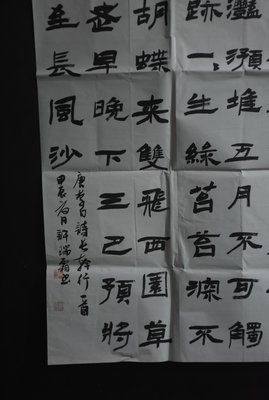 灩澦堆五月不可觸
跡一〻生綠苔苔深不
胡蝶來雙飛西園草
老早晚下三巴預將
至長風沙
唐李白詩長幹行一首
甲辰月許瑞